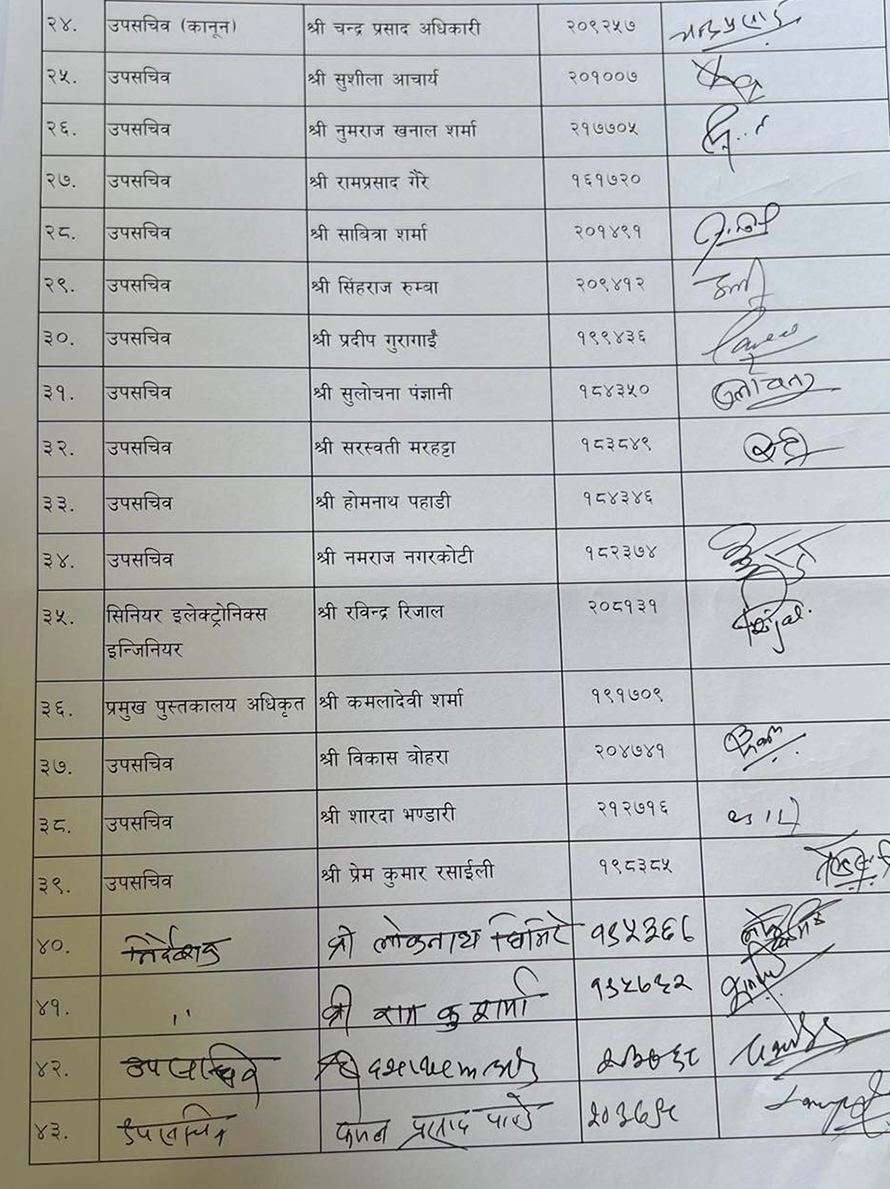 २४. उपसचिव (कानून) श्री चन्द्र प्रसाद अधिकारी २०९२५७
२५. उपसचिव श्री सुशीला आचार्य २०१००७
२६. उपसचिव श्री नुमराज खनाल शर्मा २१७७०५
२७. उपसचिव श्री रामप्रसाद गैरे १६१७२०
२८. उपसचिव श्री सावित्रा शर्मा २०१४९१
२९. उपसचिव श्री सिंहराज रुम्वा २०९४१२
३०. उपसचिव श्री प्रदीप गुरागाईं १९९४३६
३१. उपसचिव श्री सुलोचना पंज्ञानी १८४३५०
३२. उपसचिव श्री सरस्वती मरहट्टा १८३८४९
३३. उपसचिव श्री होमनाथ पहाडी १८४३४६
३४. उपसचिव श्री नमराज नगरकोटी १८२३७४
३५. सिनियर इलेक्ट्रोनिक्स श्री रविन्द्र रिजाल २०८१३१
इन्जिनियर
३६. प्रमुख पुस्तकालय अधिकृत श्री कमलादेवी शर्मा १९१७०९
३७. उपसचिव श्री विकास वोहरा २०४७४१
३८. उपसचिव श्री शारदा भण्डारी २१२७१६
३९. उपसचिव श्री प्रेम कुमार रसाईली १९८३८५
४०. निर्देशक श्री लोकनाथ घिमिरे
४१. " श्री राम कु शर्मा
४२. उपसचिव
४३. उपसचिव प्रसाद पाण्डे